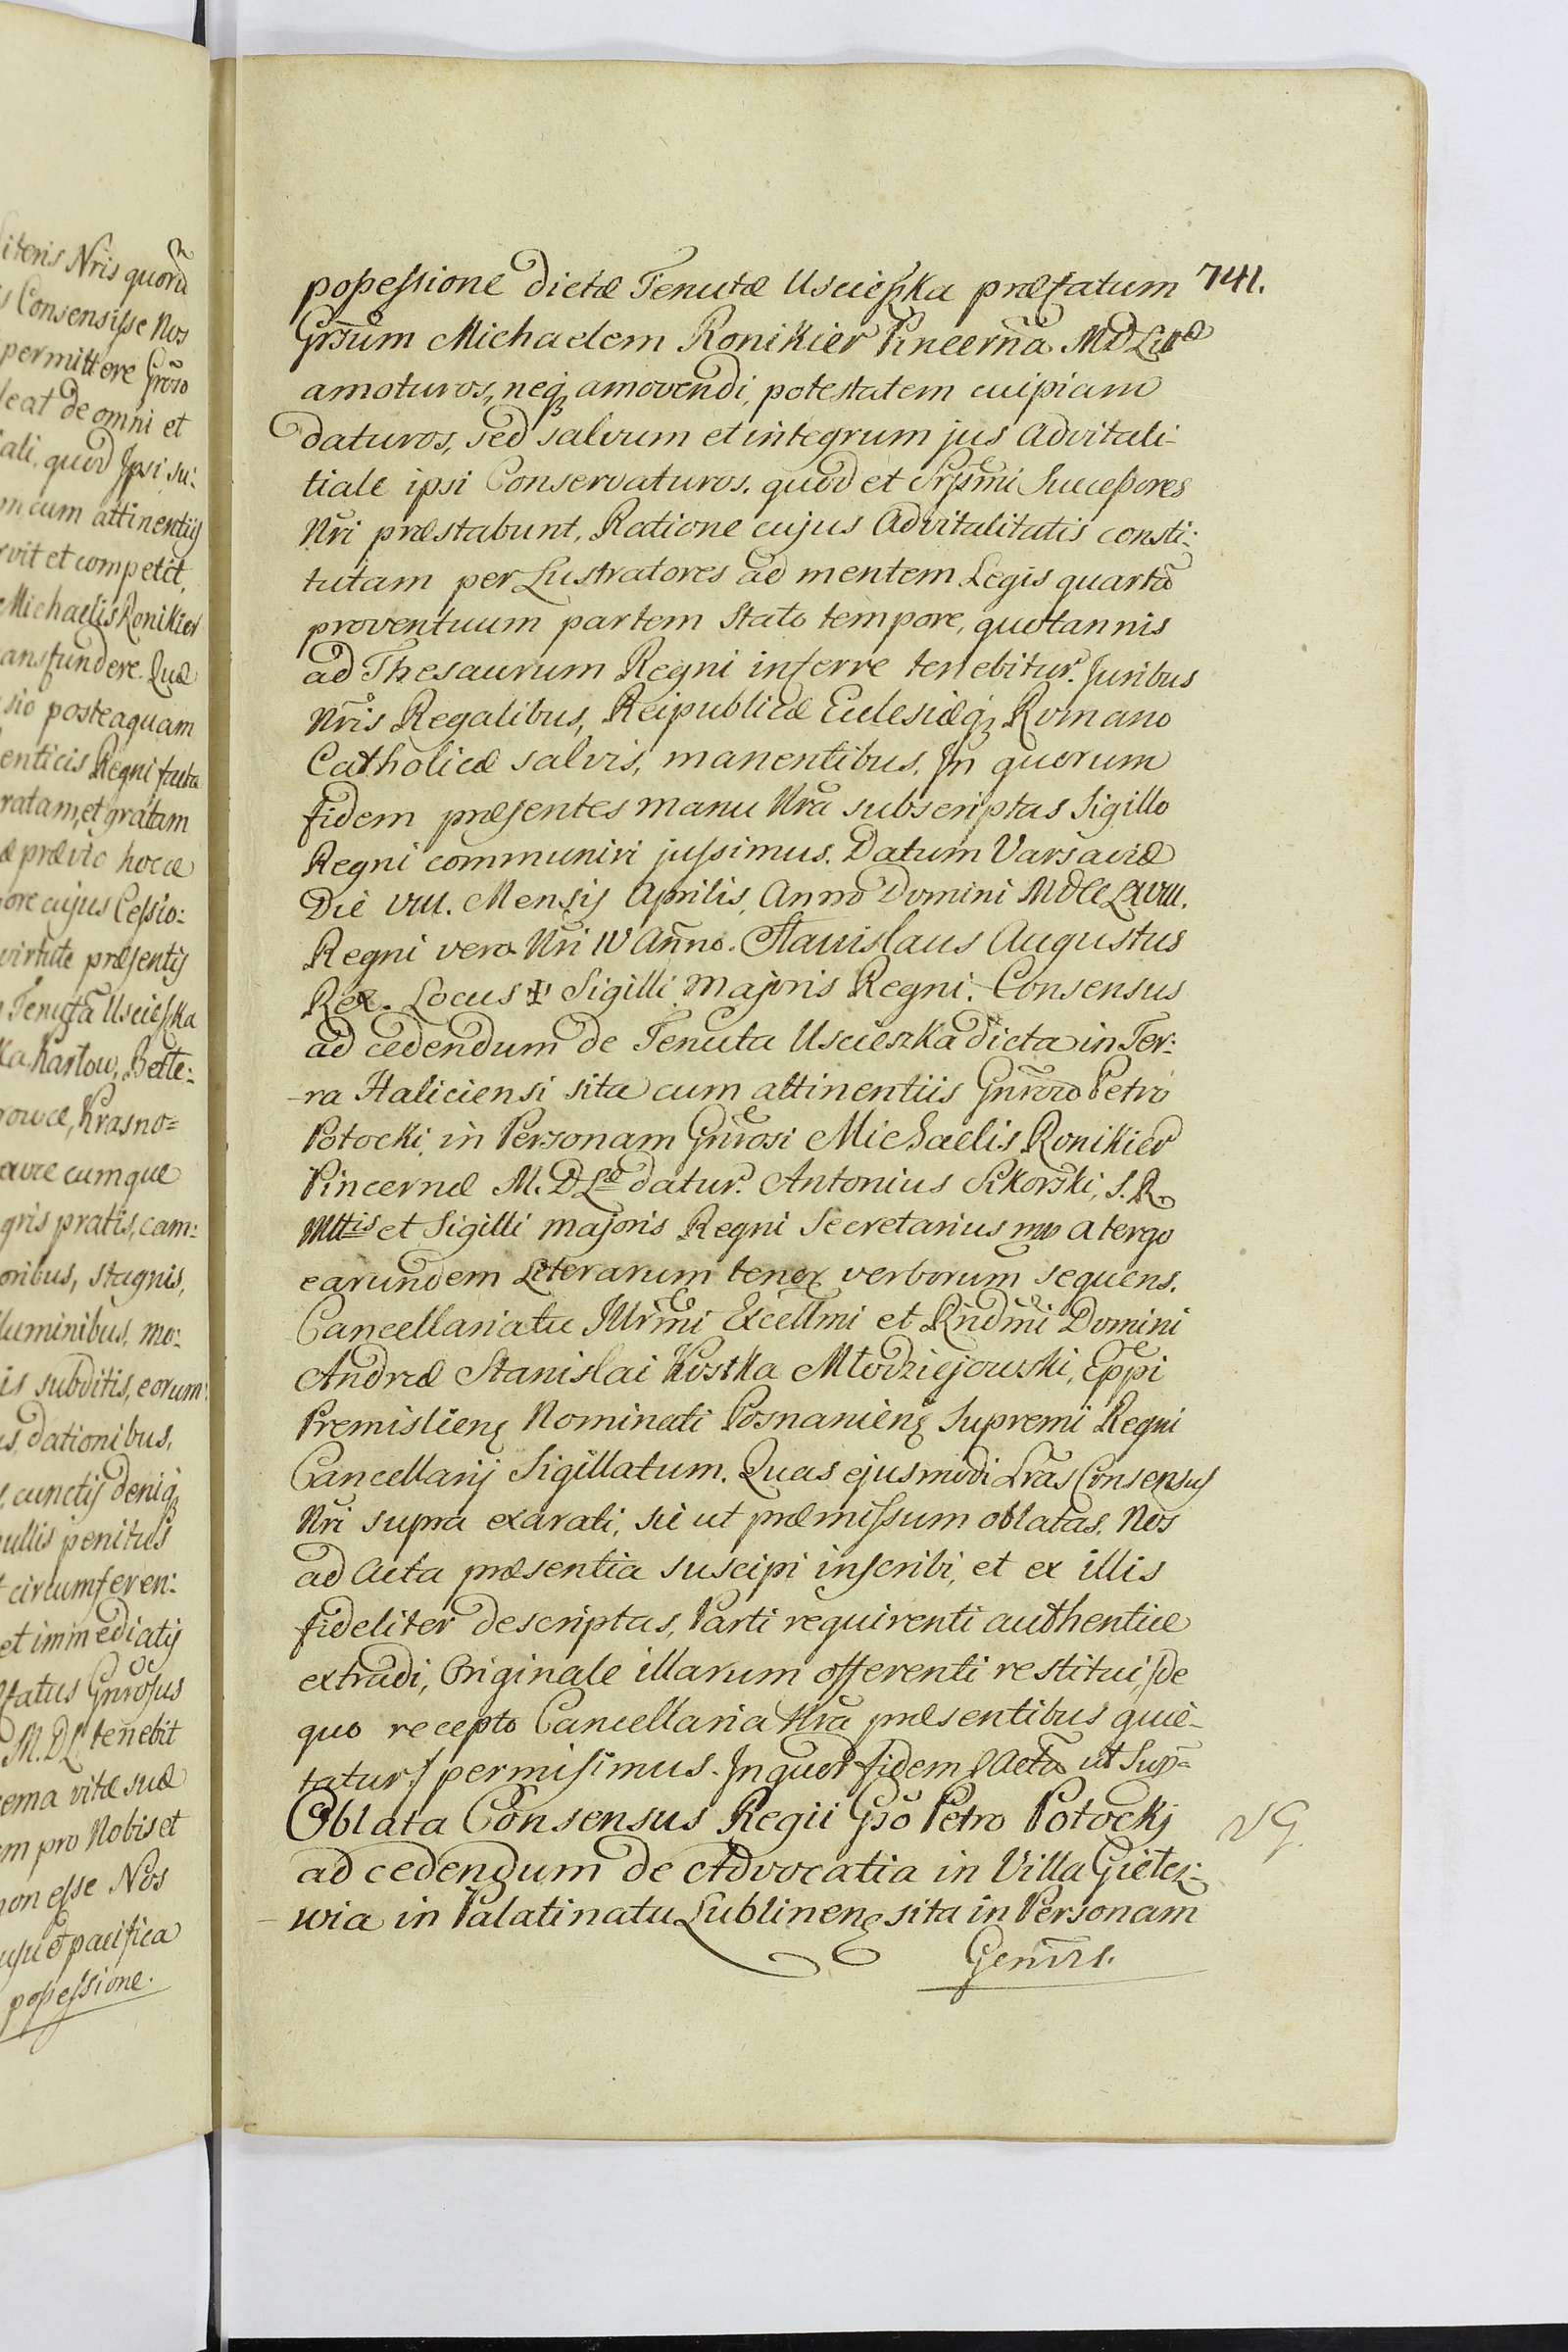 iteris Nris quorũ
s Consensisse Nos
permittere Groso
leat de omni et
ali, quod Ipsi su:
m cum attinentiis
rvit et competit,
Michaelis Ronikier
ansfundere. Quæ
sio posteaquam
enticis Regni facta
ratam, et gratam
æ prævio hocce
ore cujus Cessio:
virtute præsentis
Tenutã Uscieszka
ka Karlow, Bełe:
owce, Krasno=
avie cumque
gris pratis, cam:
oribus, stagnis,
luminibus, mo:
is subditis, eorum:
is, dationibus,
s, cunctis deniq3
nullis penitus
t circumferen:
et immediatis
fatus Gnrosus
M. D L. tenebit
rema vitæ suæ
em pro Nobis et
non esse Nos
usu et pacifica
possessione.
741.
possessione dictæ Tenutæ Uscieszka præfatum
Grsum Michaelem Ronikier Pincernã M D Litt
amoturos, neq3 amovendi, potestatem cuipiam
daturos, sed salvum et integrum jus Advitali-
tiale ipsi Conservaturos. quod et Srssmi Successores
Nri præstabunt, Ratione cujus Advitalitatis consti:
tutam per Lustratores ad mentem Legis quartã
proventuum partem stato tempore, quottannis
ad Thesaurum Regni inferre tenebitur. Juribus
Nris Regalibus, Reipublicæ Eclesiæq3 Romano
Catholicæ salvis, manentibus. In quorum
fidem præsentes manu Nrã subscriptas Sigillo
Regni communiri jussimus. Datum Varsaviæ
Die VIII. Mensis Aprilis, Anno Domini MDCCLXVIII.
Regni vero Nri IV Anno. Stanislaus Augustus
Rex. Locus ✠ Sigilli Majoris Regni. Consensus
ad cedendum de Tenuta Uscieszka dicta in Ter:
-ra Haliciensi sita cum attinentiis Gnroso Petro
Potocki, in Personam Gnrosi Michaelis Ronikier
Pincernæ M. D L datur. Antonius Sikorski, S. R
Mttis et Sigilli majoris Regni Secretarius mp a tergo
earundem Literarum tenor verborum sequens.
Cancellariatu Illrmi Excellmi et Rndmi Domini
Andreæ Stanislai Kostka Młodziejowski, Eppi
Premisliens Nominati Posnaniens Supremi Regni
Cancellarij Sigillatum. Quas ejusmodi Lrãs Consensus
Nri supra exarati, sic ut præmissum oblatas. Nos
ad Acta præsentia suscipi inscribi, et ex illis
fideliter descriptas, Parti requirenti authentice
extradi, Originale illarum offerenti restitui, /de
quo recepto Cancellaria Nrã præsentibus quie-
tatur/ permisimus. In quor fidem Acta ut Sup=
Oblata Consensus Regii Gso Petro Potockj
ad cedendum de Advocatia in Villa Gielez-
-wia in Palatinatu Lublinens sita in Personam